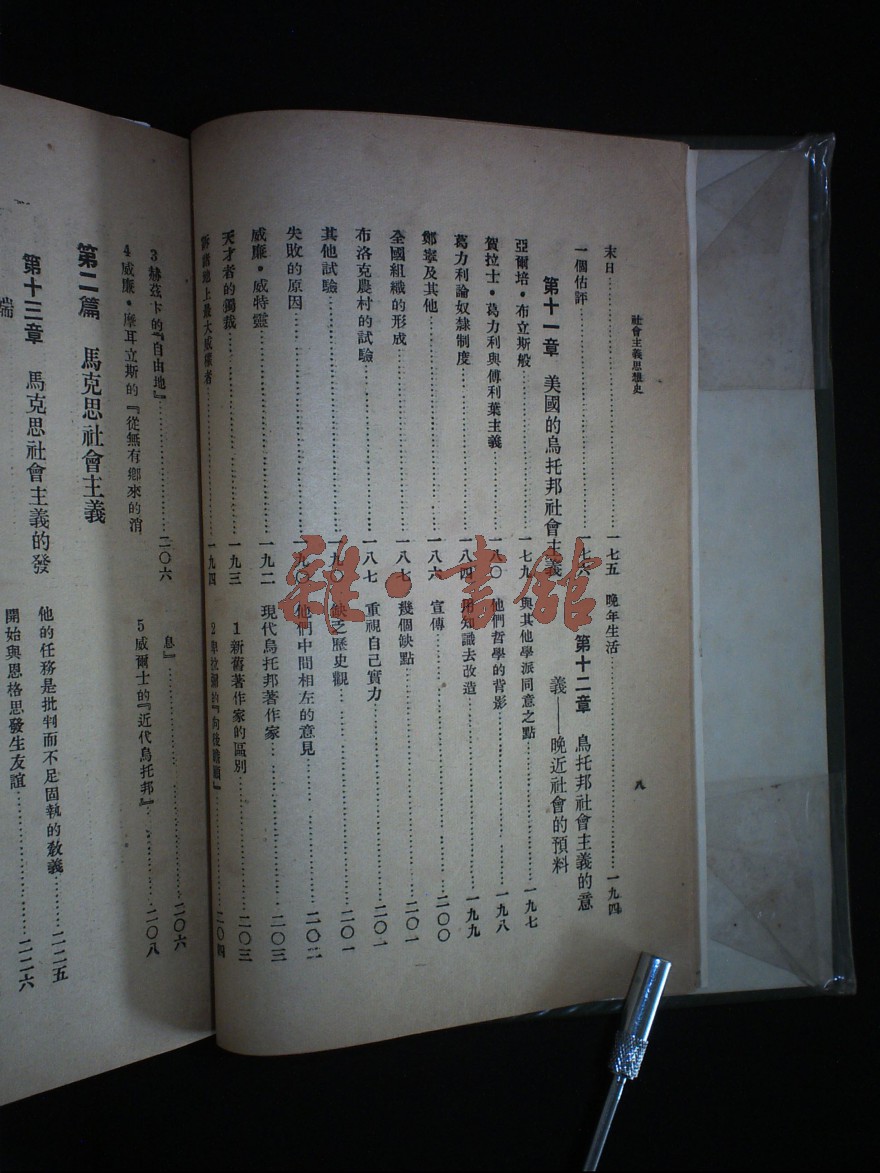 社會主義思想史
八
末日……一七五
一個估評……一七六
第十一章　美國的烏托邦社會主義
亞爾培・布立斯般……一七九
賀拉士・葛力利與傅利葉主義……一八〇
葛力利論奴隸制度……一八四
鄭寧及其他……一八六
全國組織的形成……一八七
布洛克農村的試驗……一八七
其他試驗……一九〇
失敗的原因……一九〇
威廉・威特靈……一九二
天才者的獨裁……一九三
訴諸地上最大威權者……一九四
晚年生活……一九四
第十二章　烏托邦社會主義的意
義——晚近社會的預料
與其他學派同意之點……一九七
他們哲學的背影……一九八
用知識去改造……一九九
宣傳……二〇〇
幾個缺點……二〇一
重視自己實力……二〇一
缺乏歷史觀……二〇一
他們中間相左的意見……二〇二
現代烏托邦著作家……二〇三
1 新舊著作家的區別……二〇三
2 的『向後瞻顧』……二〇四
3 赫茲卡的『自由地』……二〇六
4 威廉・摩耳立斯的『從無有鄉來的消
息』……二〇六
5 威爾士的『近代烏托邦』……二〇八
第二篇　馬克思社會主義
第十三章　馬克思社會主義的發
端
他的任務是批判而不足固執的教義……二二五
開始與恩格思發生友誼……二二六
雜・書館